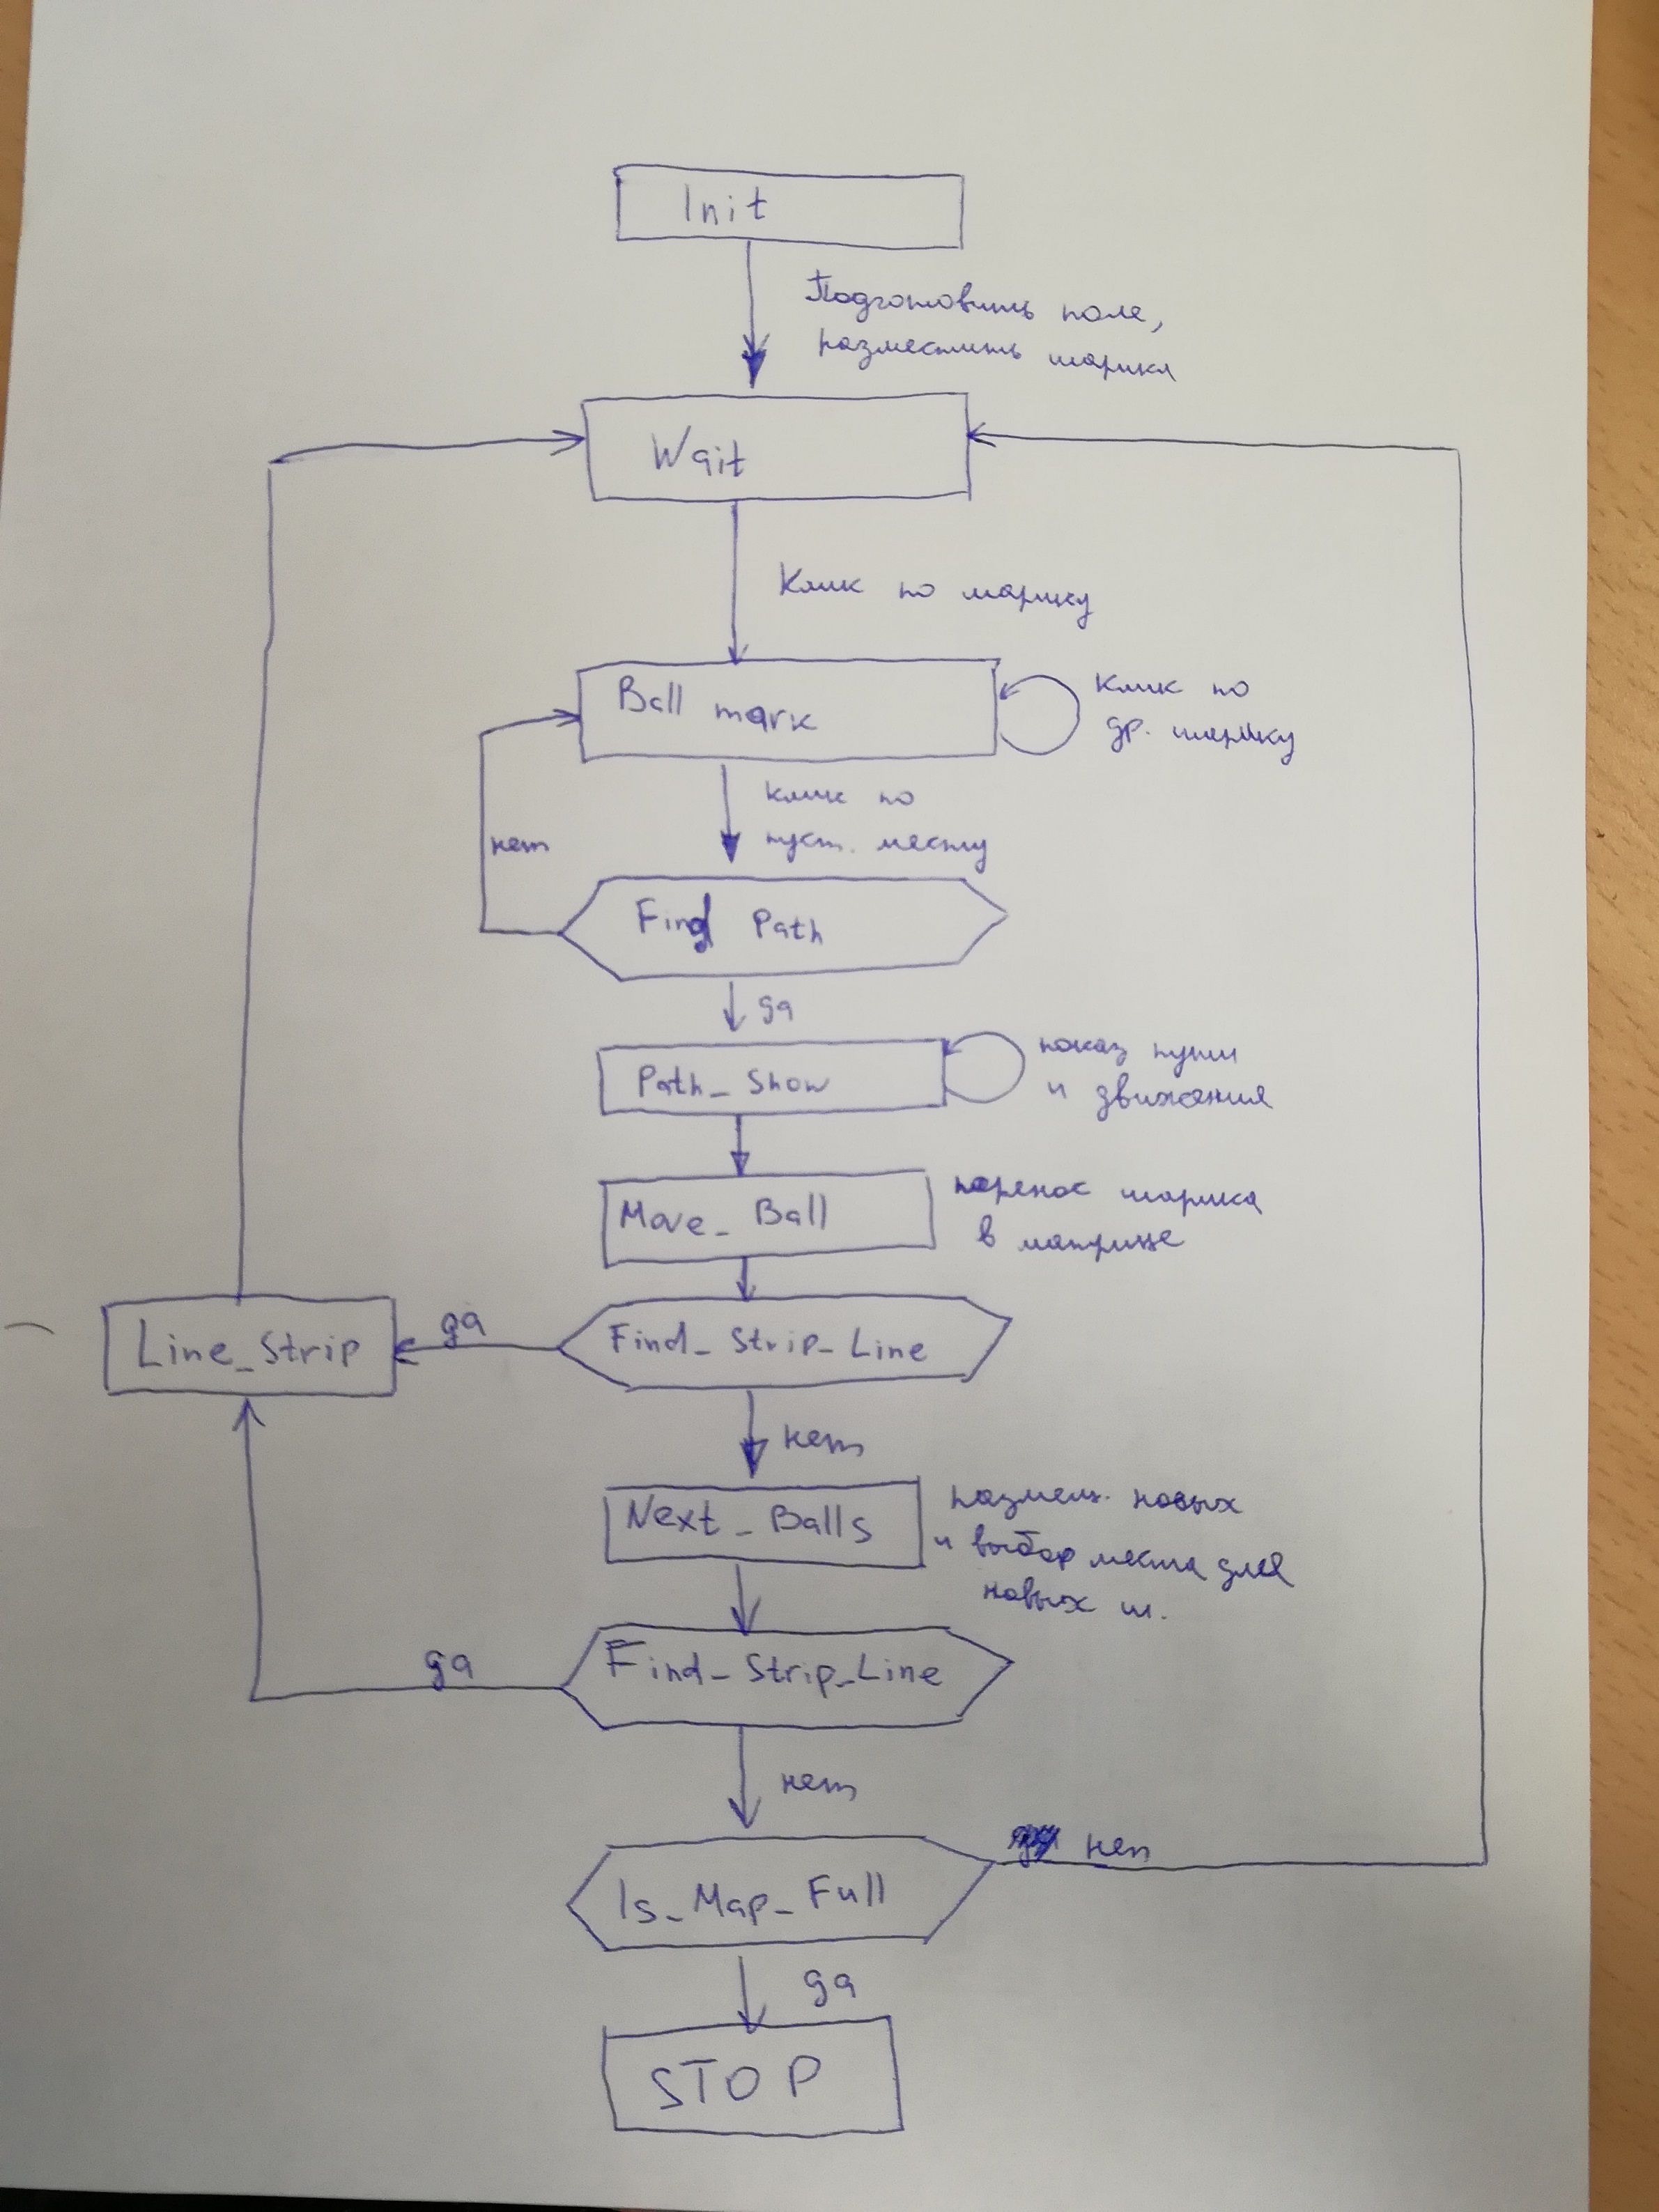 Init
Подготовить поле,
разместить шарики
Wait
Клик по шарику
Ball mark
Клик по
др. шарику
нет
клик по
пуст. месту
Find Path
да
Path_Show
показ пути
и движения
Move_Ball
перенос шарика
в матрице
Line_Strip
да
Find_Strip_Line
нет
Next_Balls
размещ. новых
и выбор места для
новых ш.
да
Find_Strip_Line
нет
нет
Is_Map_Full
да
STOP